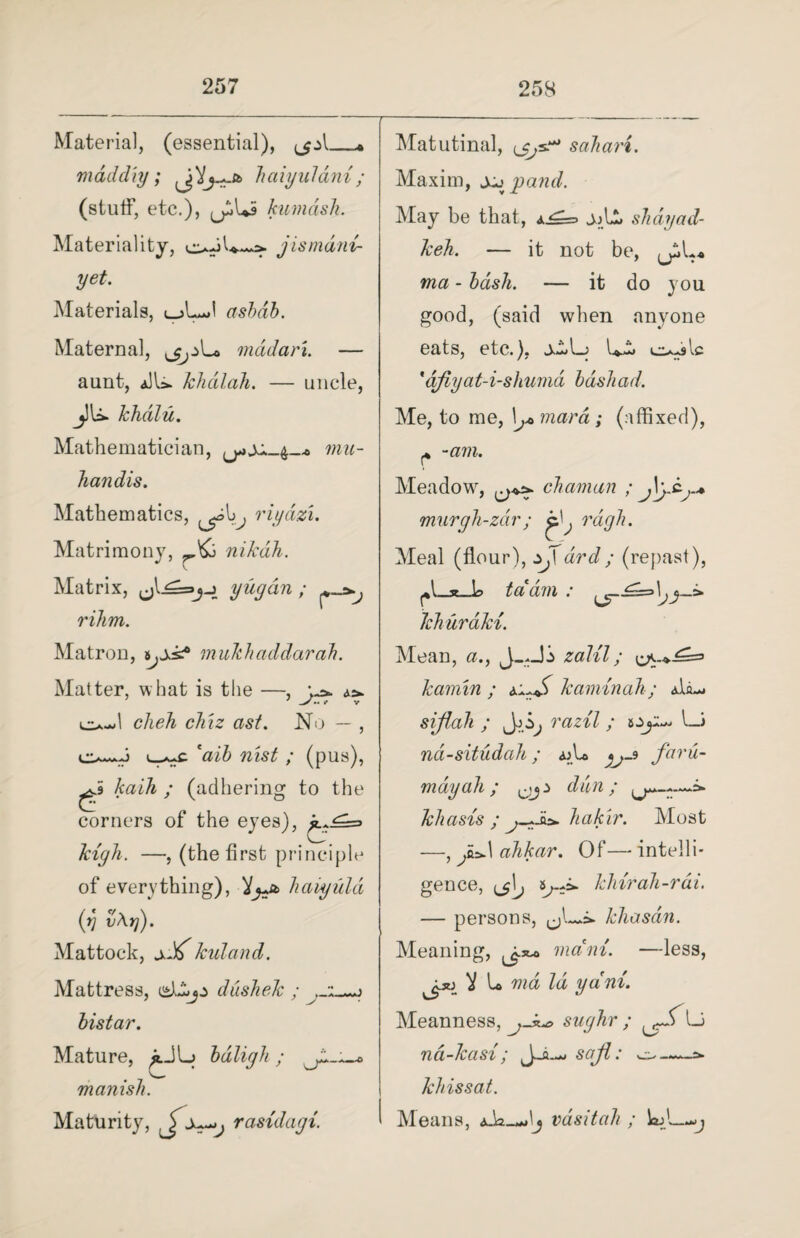 257
258
Material, (essential), مادی
máddíy ; هیولانی haiyulání ;
(stuff, etc.), قماش kumásh.
Materiality, جسمانیت jismání-
yet.
Materials, اسباب asbáb.
Maternal, مادری mádarí. —
aunt, خاله khálah. — uncle,
خالو khálú.
Mathematician, مهندس mu-
handis.
Mathematics, ریاضی riyází.
Matrimony, نکاح nikáh.
Matrix, یوگان yúgán ; رحم
rihm.
Matron, مخدره mukhaddarah.
Matter, what is the —, چه چیز
است cheh chíz ast. No — ,
عیب نیست 'aib níst ; (pus),
قیح kaih ; (adhering to the
corners of the eyes), کیغ
kígh. —, (the first principle
of everything), هیولا haiyúlá
(ἡ ὕλη).
Mattock, کلند kuland.
Mattress, دوشک dúshek ; بستر
bistar.
Mature, بالغ báligh ; منش
manish.
Maturity, رسیدگی rasídagí.
Matutinal, سحری saharí.
Maxim, پند pand.
May be that, شاید که sháyad-
keh. — it not be, مباش
ma - básh. — it do you
good, (said when anyone
eats, etc.), عافیت شما باشد
'áfiyat-i-shumá báshad.
Me, to me, مرا mará ; (affixed),
م -am.
Meadow, چمن chaman ; مرغزار
murgh-zár ; راغ rágh.
Meal (flour), آرد árd ; (repast),
طعام ta'ám : خوراکی
khúrákí.
Mean, a., ذلیل zalíl ; کمین
kamín ; کمینه kamínah ; سفله
siflah ; رذیل razíl ; نا ستوده
ná-sitúdah ; فرو مایه farú-
máyah ; دون dún ; خسیس
khasís ; حقیر hakír. Most
—, احقر ahkar. Of — intelli-
gence, خیره رای khírah-rái.
— persons, خسان khasán.
Meaning, معنی ma'ní. —less,
ما لا یعنی má lá ya'ní.
Meanness, صغر sughr ; نا کسی
ná-kasí ; سفل safl : خست
khissat.
Means, واسطه vásitah ; وسایط